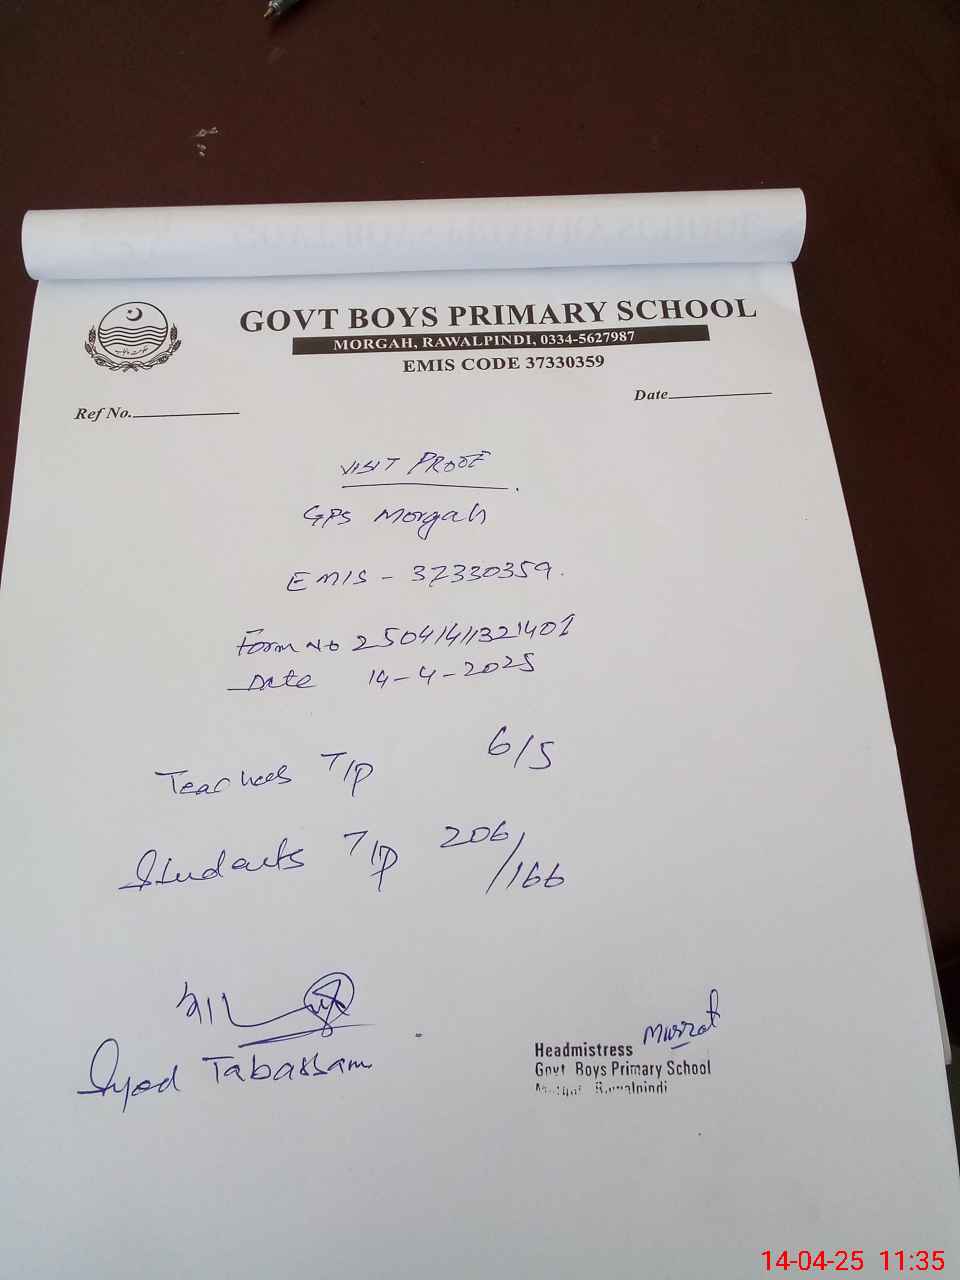 GOVT BOYS PRIMARY SCHOOL
MORGAH, RAWALPINDI, 0334-5627987
EMIS CODE 37330359
Ref No.
Date
VISIT PROOF
GPS Morgah
EMIS - 37330359.
Form No 25041411321401
Date 14-4-2025
Teachees T/P 6/5
Students T/P 206/166
Syed Tabassam
Musrat
Headmistress
Govt Boys Primary School
Rawalpindi
14-04-25 11:35